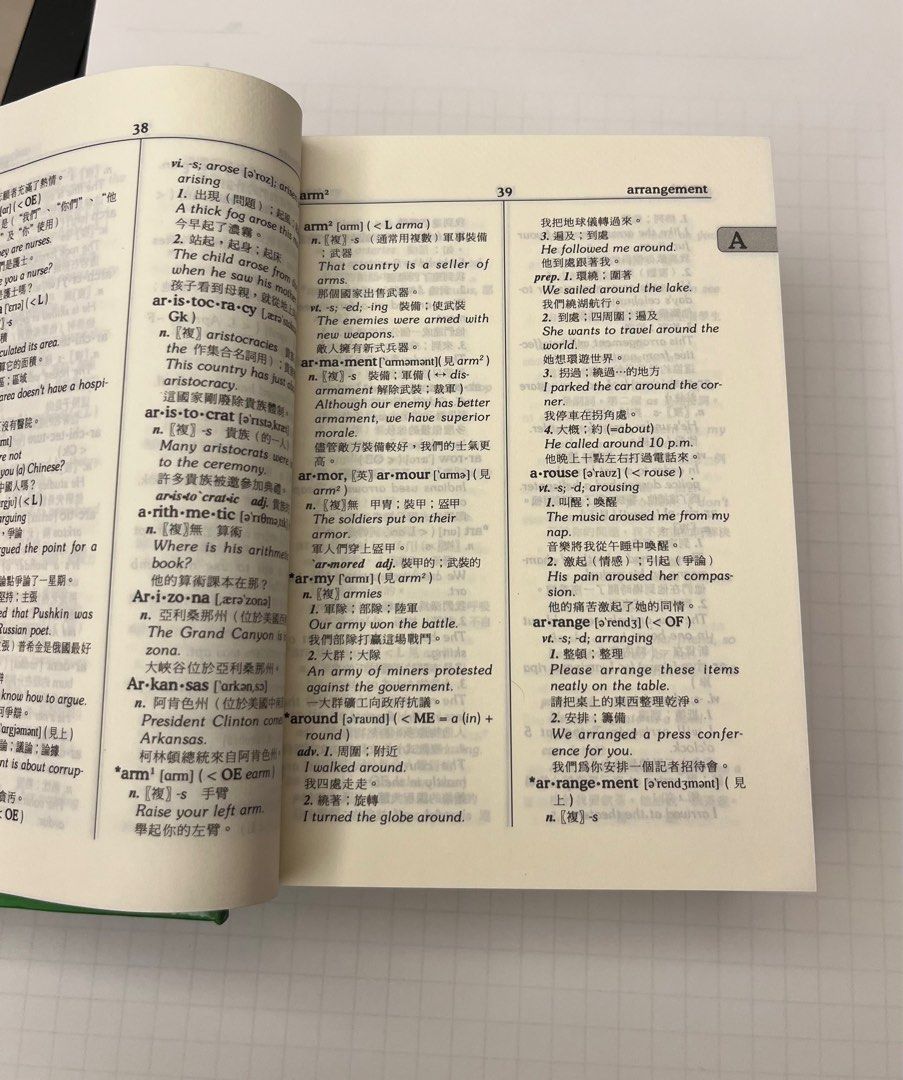 38
顧者充滿了熱情。
[ɑr] (< OE)
是（“我們”、“你們”、“他
”及“你”使用）
they are nurses.
們是護士。
e you a nurse?
護士嗎？
['ɛrɪə] (< L)
-s
積
culated its area.
算它的面積。
區；區域
area doesn't have a hospi-
沒有醫院。
re not
you (a) Chinese?
中國人嗎？
(< L)
arguing
，爭論
gued the point for a
論點爭論了一星期。
堅持；主張
ed that Pushkin was
Russian poet.
張）普希金是俄國最好
know how to argue.
可爭辯。
['ɑrgjəmənt] (見上)
論；議論；論據
nt is about corrup-
貪汚。
< OE)
vi. -s; arose [ə'roz];
arising
1. 出現（問題）；起風
A thick fog arose this
今早起了濃霧。
2. 站起，起身；起床
The child arose from
when he saw his mother
孩子看到母親，就從
ar•is•toc•ra•cy
Gk)
n. 〖複〗aristocracies
the 作集合名詞用）；
This country has just
aristocracy.
這國家剛廢除貴族體制。
ar•is•to•crat [ə'rɪstə,kræt]
n. 〖複〗-s 貴族（的一人）
Many aristocrats were
to the ceremony.
許多貴族被邀參加典禮。
ar•is•to`crat•ic adj.
a•rith•me•tic [ə'rɪθmə,tɪk]
n. 〖複〗無 算術
Where is his arithmetic
book?
他的算術課本在那？
Ar•i•zo•na [,ærə'zonə]
n. 亞利桑那州（位於美國
The Grand Canyon is
zona.
大峽谷位於亞利桑那州。
Ar•kan•sas ['ɑrkən,sɔ]
n. 阿肯色州（位於美國中
President Clinton come
Arkansas.
柯林頓總統來自阿肯色州
*arm¹ [ɑrm] (< OE earm)
n. 〖複〗-s 手臂
Raise your left arm.
舉起你的左臂。
arm²
39
arrangement
arm² [ɑrm] (< L arma)
n. 〖複〗-s （通常用複數）軍事裝備
；武器
That country is a seller of
arms.
那個國家出售武器。
vt. -s; -ed; -ing 裝備；使武裝
The enemies were armed with
new weapons.
敵人擁有新式兵器。
ar•ma•ment ['ɑrməmənt] (見 arm²)
n. 〖複〗-s 裝備；軍備（↔ dis-
armament 解除武裝；裁軍）
Although our enemy has better
armament, we have superior
morale.
儘管敵方裝備較好，我們的士氣更
高。
ar•mor, 〖英〗ar•mour ['ɑrmə] (見
arm²)
n. 〖複〗無 甲冑；裝甲；盔甲
The soldiers put on their
armor.
軍人們穿上盔甲。
`ar•mored adj. 裝甲的；武裝的
*ar•my ['ɑrmɪ] (見 arm²)
n. 〖複〗armies
1. 軍隊；部隊；陸軍
Our army won the battle.
我們部隊打贏這場戰鬥。
2. 大群；大隊
An army of miners protested
against the government.
一大群礦工向政府抗議。
*around [ə'raʊnd] (< ME = a (in) +
round)
adv. 1. 周圍；附近
I walked around.
我四處走走。
2. 繞著；旋轉
I turned the globe around.
我把地球儀轉過來。
3. 遍及；到處
He followed me around.
他到處跟著我。
prep. 1. 環繞；圍著
We sailed around the lake.
我們繞湖航行。
2. 到處；四周圍；遍及
She wants to travel around the
world.
她想環遊世界。
3. 拐過；繞過…的地方
I parked the car around the cor-
ner.
我停車在拐角處。
4. 大概；約 (=about)
He called around 10 p.m.
他晚上十點左右打過電話來。
a•rouse [ə'raʊz] (< rouse)
vt. -s; -d; arousing
1. 叫醒；喚醒
The music aroused me from my
nap.
音樂將我從午睡中喚醒。
2. 激起（情感）；引起（爭論）
His pain aroused her compas-
sion.
他的痛苦激起了她的同情。
ar•range [ə'rendʒ] (< OF)
vt. -s; -d; arranging
1. 整頓；整理
Please arrange these items
neatly on the table.
請把桌上的東西整理乾淨。
2. 安排；籌備
We arranged a press confer-
ence for you.
我們爲你安排一個記者招待會。
*ar•range•ment [ə'rendʒmənt] (見
上)
n. 〖複〗-s
A